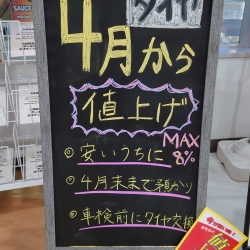 タイヤ
4月から
値上げ
MAX
8%
◎安いうちに
◎4月末まで預かり
◎車検前にタイヤ交換
SAUCE